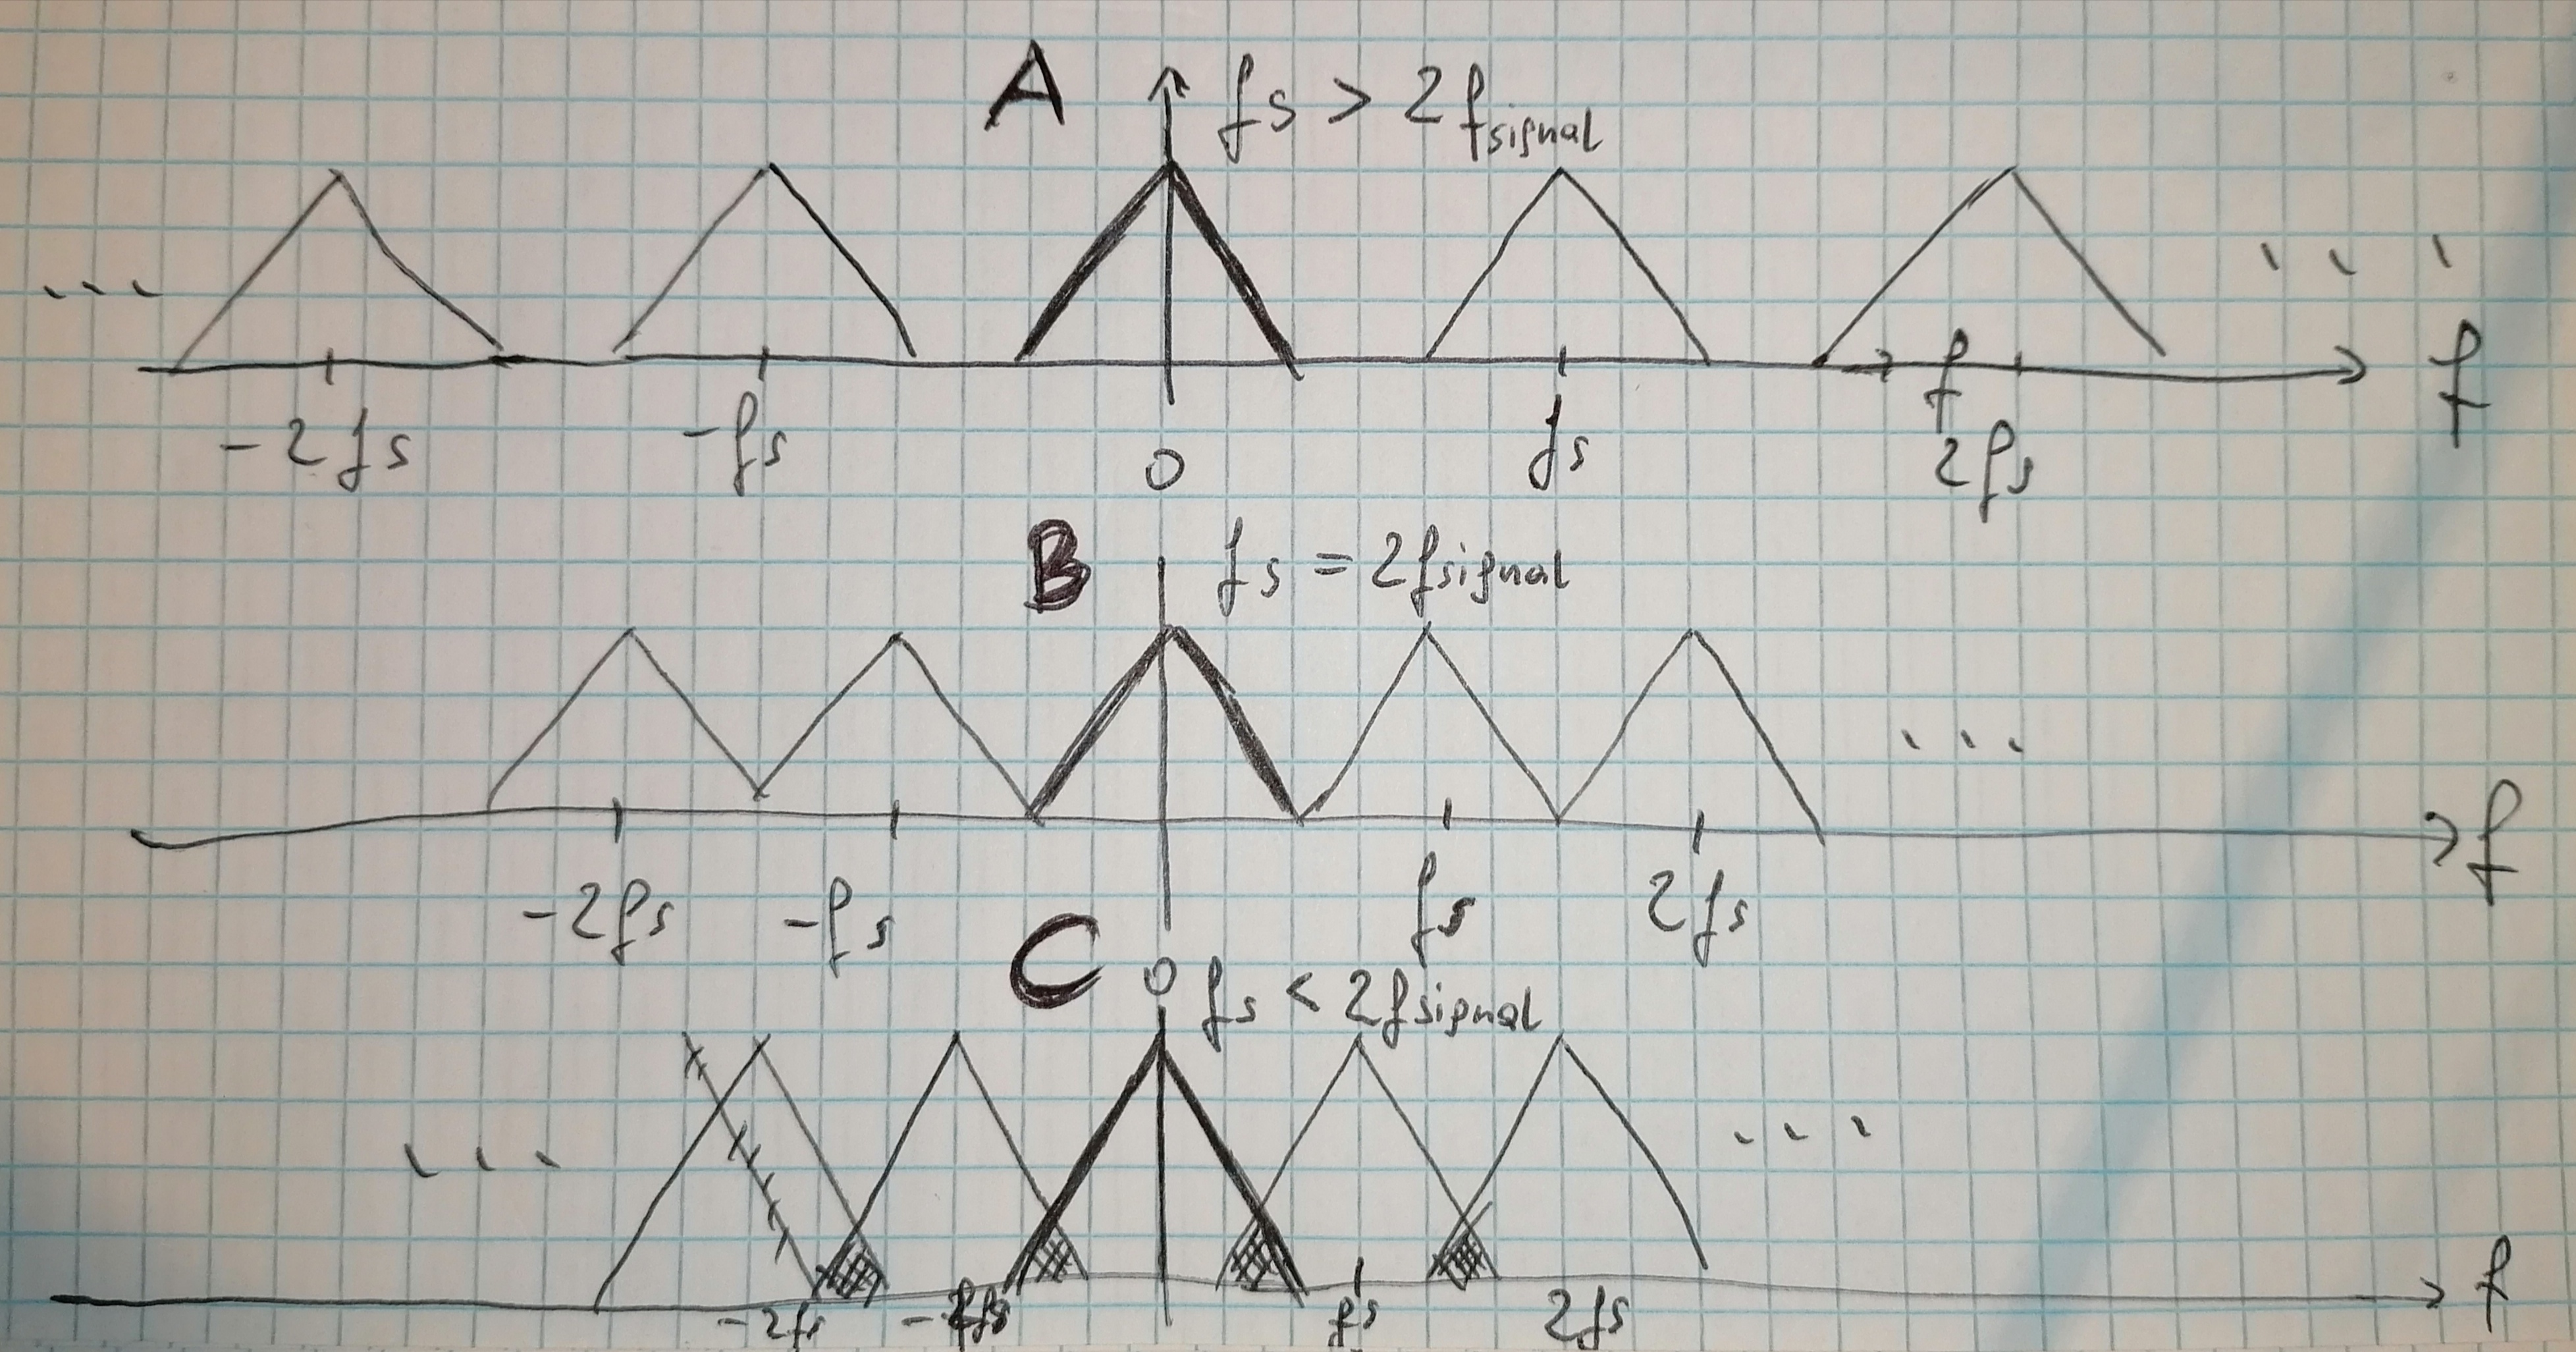 A fs > 2fsignal
... ...
f f
-2fs -fs 0 fs 2fs
B fs = 2fsignal
...
f
-2fs -fs fs 2fs
C 0 fs < 2fsignal
... ...
f
-2fs -fs fs 2fs